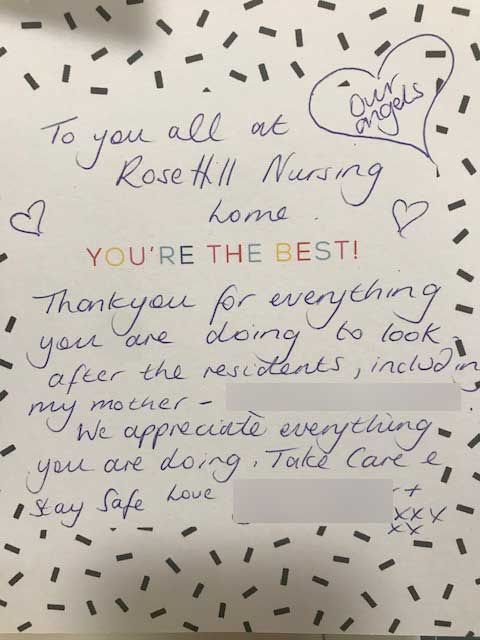 Our
angels
To you all at
Rose Hill Nursing
home.
YOU'RE THE BEST!
Thankyou for everything
you are doing to look
after the residents, including
my mother -
We appreciate everything
you are doing. Take Care &
Stay Safe Love
+
xxx
xx